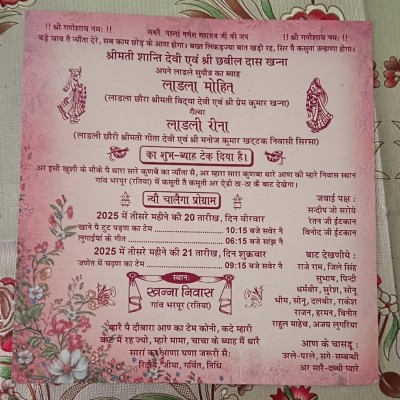 ।। श्री गणेशाय नमः ।। सबतै पहल्यां गणेश महाराज जी की जय ।। श्री गणेशाय नमः ।।
बड़े चाव तै न्यौता देरे, सब काम छोड़ कै आणा होगा। बख्त लिकड़ज्या बात खड़ी रह, सिर पै कसुता उल्हाणा होगा।
श्रीमती शान्ति देवी एवं श्री छबील दास खन्ना
अपने लाडले सुपौत्र का ब्याह
लाडला मोहित
(लाडला छौरा श्रीमती विद्या देवी एवं श्री प्रेम कुमार खन्ना)
गैल्या
लाडली रीना
(लाडली छौरी श्रीमती गीता देवी एवं श्री मनोज कुमार खट्टक निवासी सिरसा)
का शुभ-ब्याह टेक दिया है।
अर इसी खुशी के मौके पै थारा सारे कुणबे का न्यौता सै, अर म्हारा सारा कुणबा थारे आण की म्हारे निवास स्थान
गांव भरपूर (रतिया) में कसुती तै कसुती अर ऐडी ठा-ठा के बाट देखेगा।
न्यौं चालैगा प्रोग्राम
2025 में तीसरे महीने की 20 तारीख, दिन वीरवार
खाने पै टूट पड़ण का टेम 10:15 बजे सवेर नै
लुगाईयां के गीत 06:15 बजे सांझ नै
2025 में तीसरे महीने की 21 तारीख, दिन शुक्रवार
जणेत में चढ़ण का टेम 09:15 बजे सवेर नै
स्थान:
खन्ना निवास
गांव भरपूर (रतिया)
म्हारै पै दोबारा आण का टेम कोनी, कदे म्हारी
बाट में रह ज्यो, म्हारे मामा, चाचा के ब्याह मैं थारै
सारां का आणा घणा जरूरी सै:
रिदीत, जीया, गर्वित, निधि
जवाई पक्ष :
सन्दीप जी सरोये
रतन जी ईटकान
विनोद जी ईटकान
बाट देखणीये :
राजे राम, जिले सिंह
सुभाष, पिन्दी
धर्मबीर, सुरेश, सोनू
भीम, सोनू, दलबीर, राकेश
राजन, हरमन, विनीत
राहुल माहेच, अजय लुगरिया
आण के चासडू :
अल्ले-परले, सगे-सम्बन्धी
अर सारै-ढब्बी प्यारे